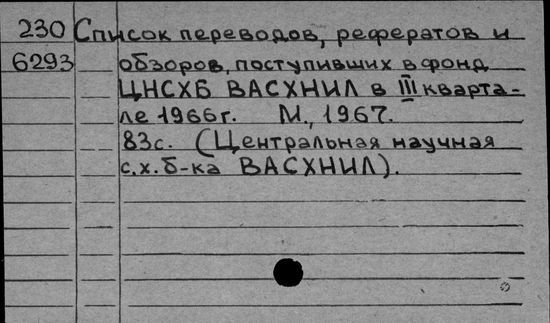 230 Список переводов, рефератов и
6293 обзоров, поступивших в фонд
ЦНСХБ ВАСХНИЛ в III кварта-
ле 1966г. М., 1967.
83с. (Центральная научная
с.х. б-ка ВАСХНИЛ).